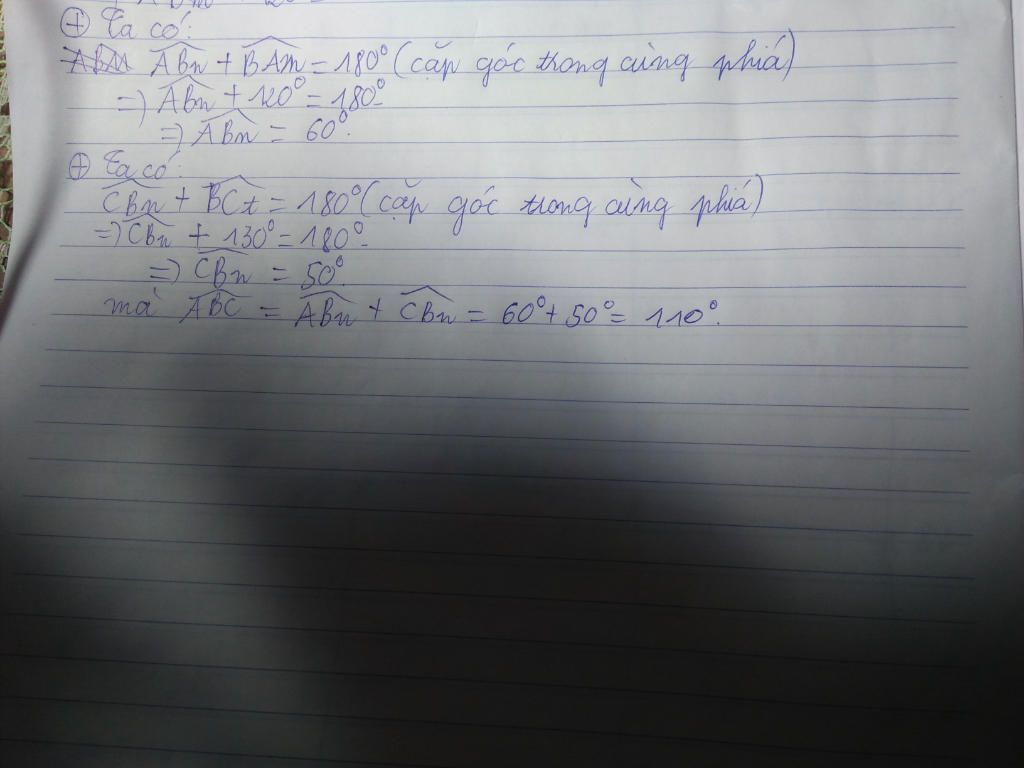 ⊕ Ta có:
ABn + BAm = 180° (cặp góc trong cùng phiá)
=) ABn + 120° = 180°
=) ABn = 60°.
⊕ Ta có:
CBn + BCt = 180° (cặp góc trong cùng phiá)
=) CBn + 130° = 180°
=) CBn = 50°.
mà ABC = ABn + CBn = 60° + 50° = 110°.